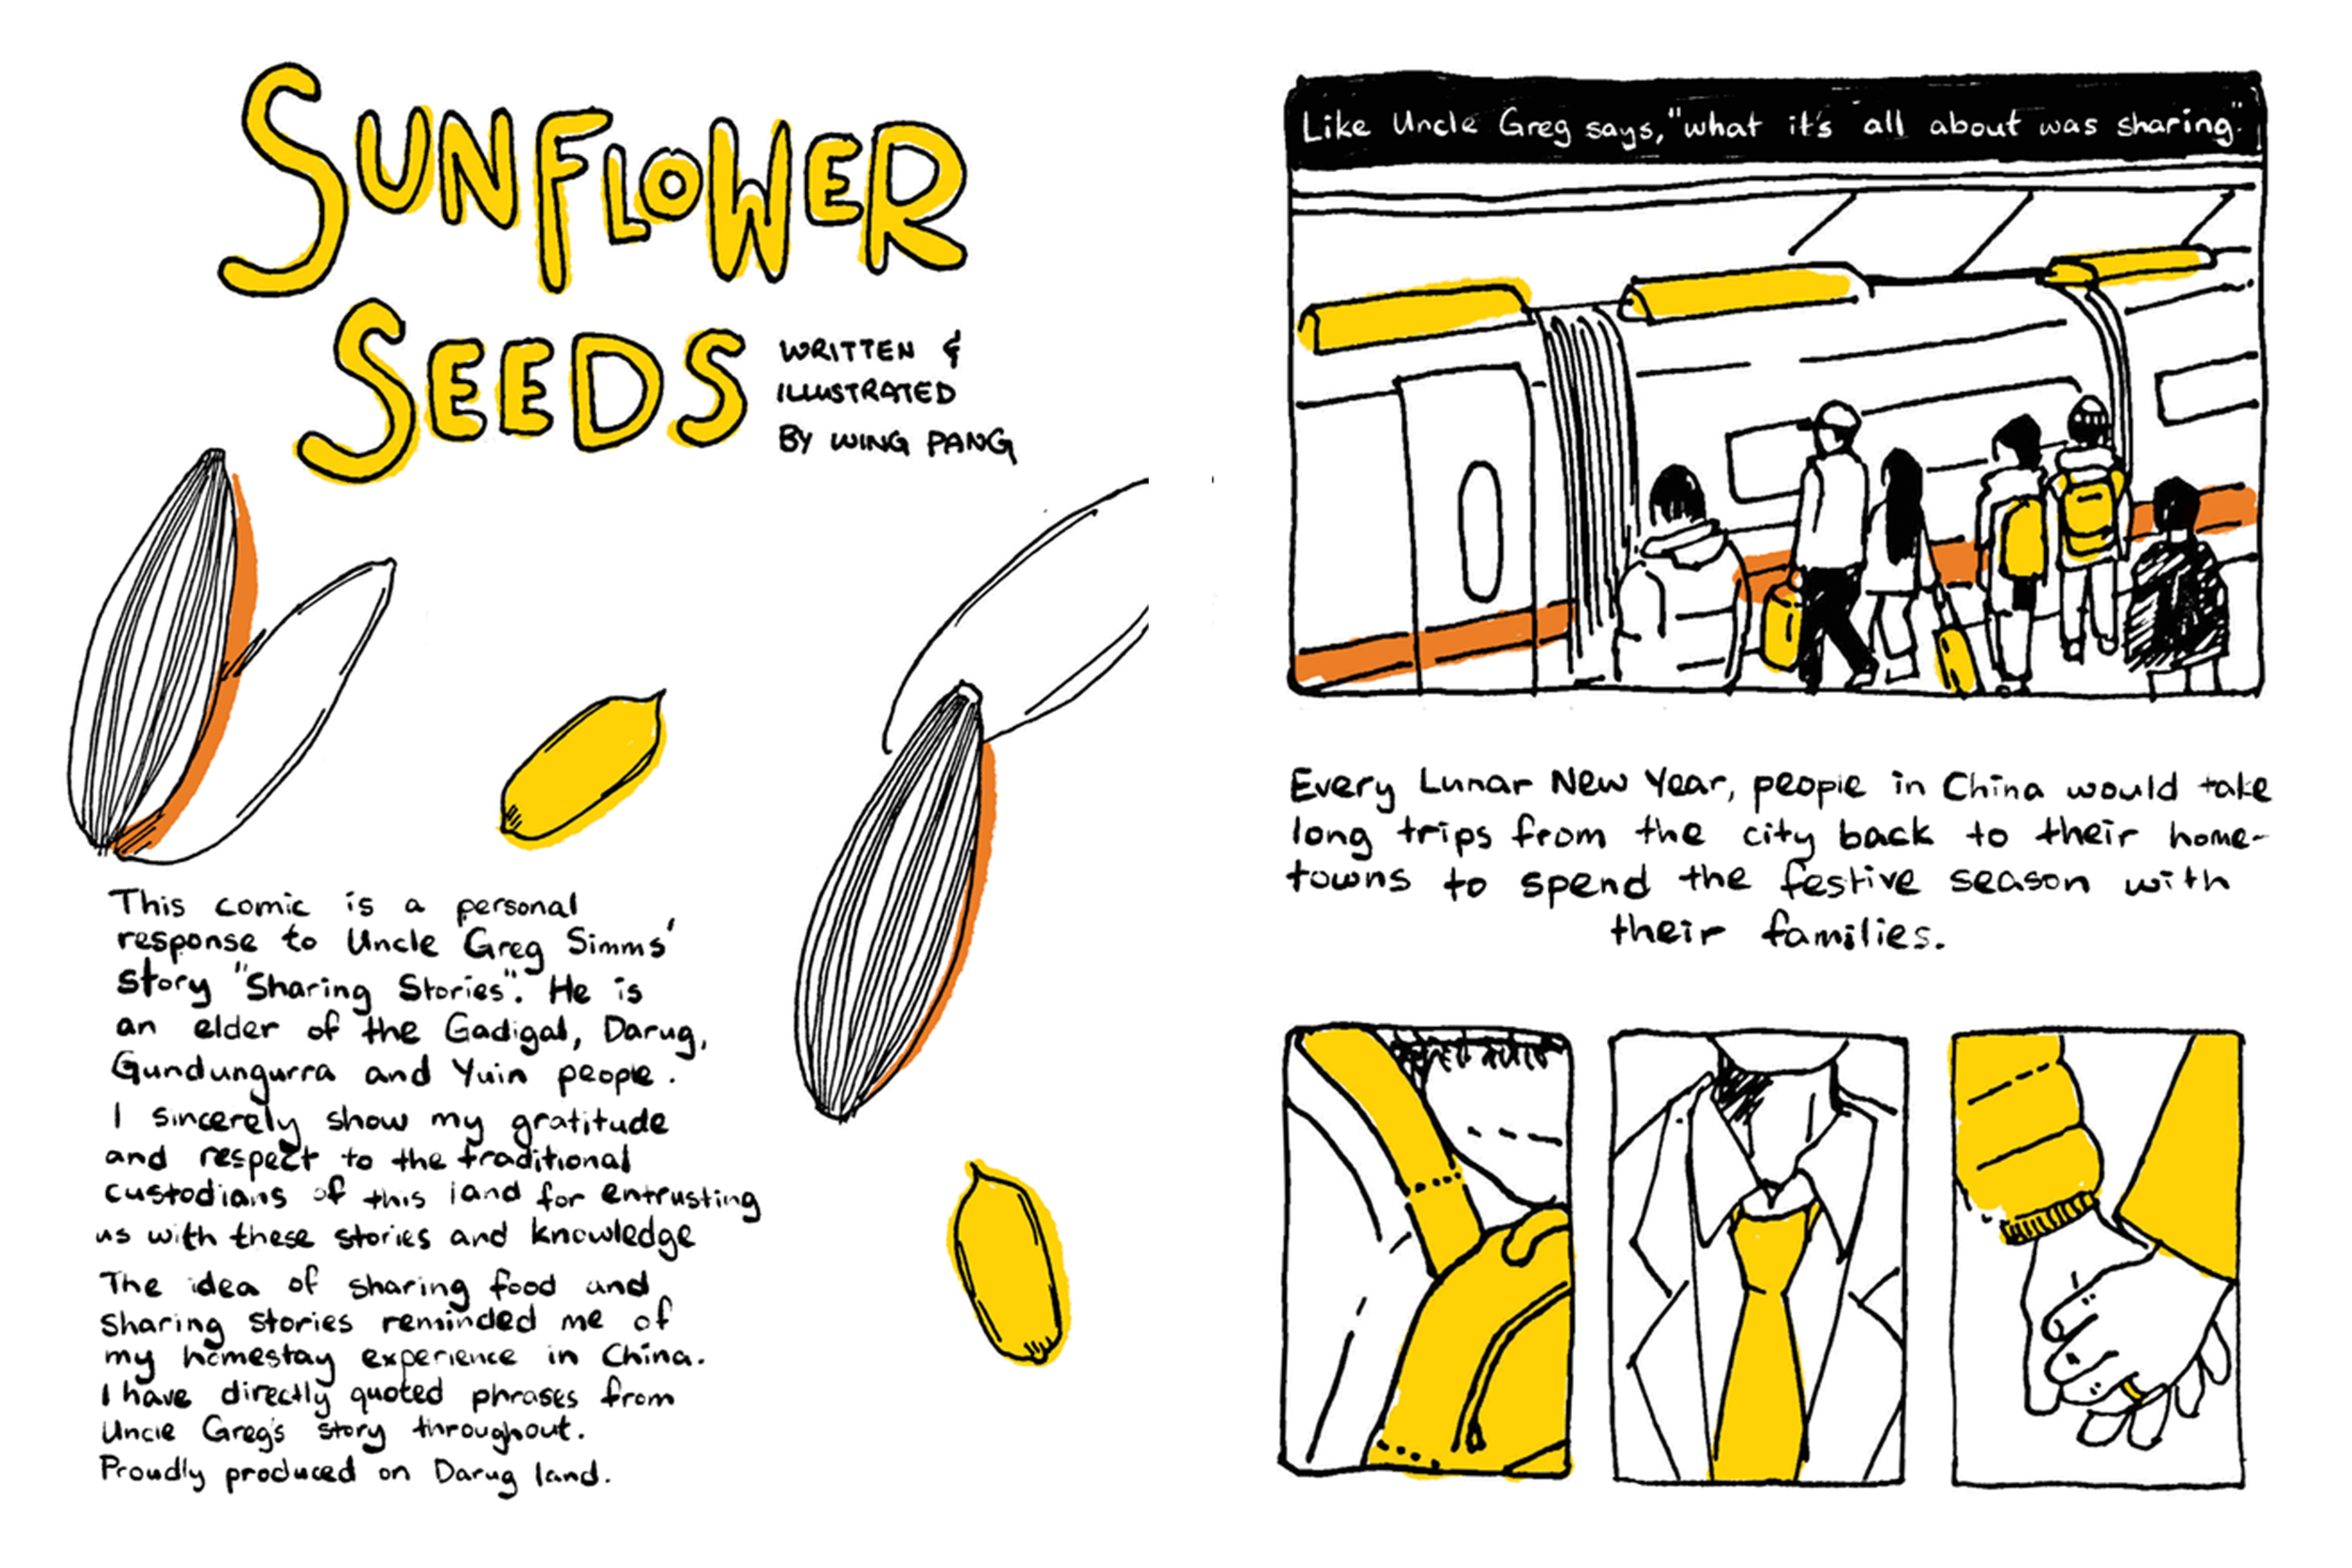 SUNFLOWER
SEEDS
WRITTEN &
ILLUSTRATED
BY WING PANG
This comic is a personal
response to Uncle Greg Simms'
story "Sharing Stories". He is
an elder of the Gadigal, Darug,
Gundungurra and Yuin people.
I sincerely show my gratitude
and respect to the traditional
custodians of this land for entrusting
us with these stories and knowledge
The idea of sharing food and
sharing stories reminded me of
my homestay experience in China.
I have directly quoted phrases from
Uncle Greg's story throughout.
Proudly produced on Darug land.
Like Uncle Greg says, "what it's all about was sharing."
Every Lunar New Year, people in China would take
long trips from the city back to their home-
towns to spend the festive season with
their families.